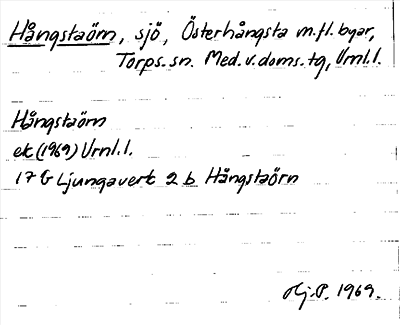 Hångstaörn, sjö, Österhångsta m.fl. byar,
Torps sn. Med. v. doms. tg, Vrnl. l.
Hångstaörn
ek (1969) Vrnl. l.
17 G Ljungaverk 2 b Hångstaörn
Hj. P. 1969.